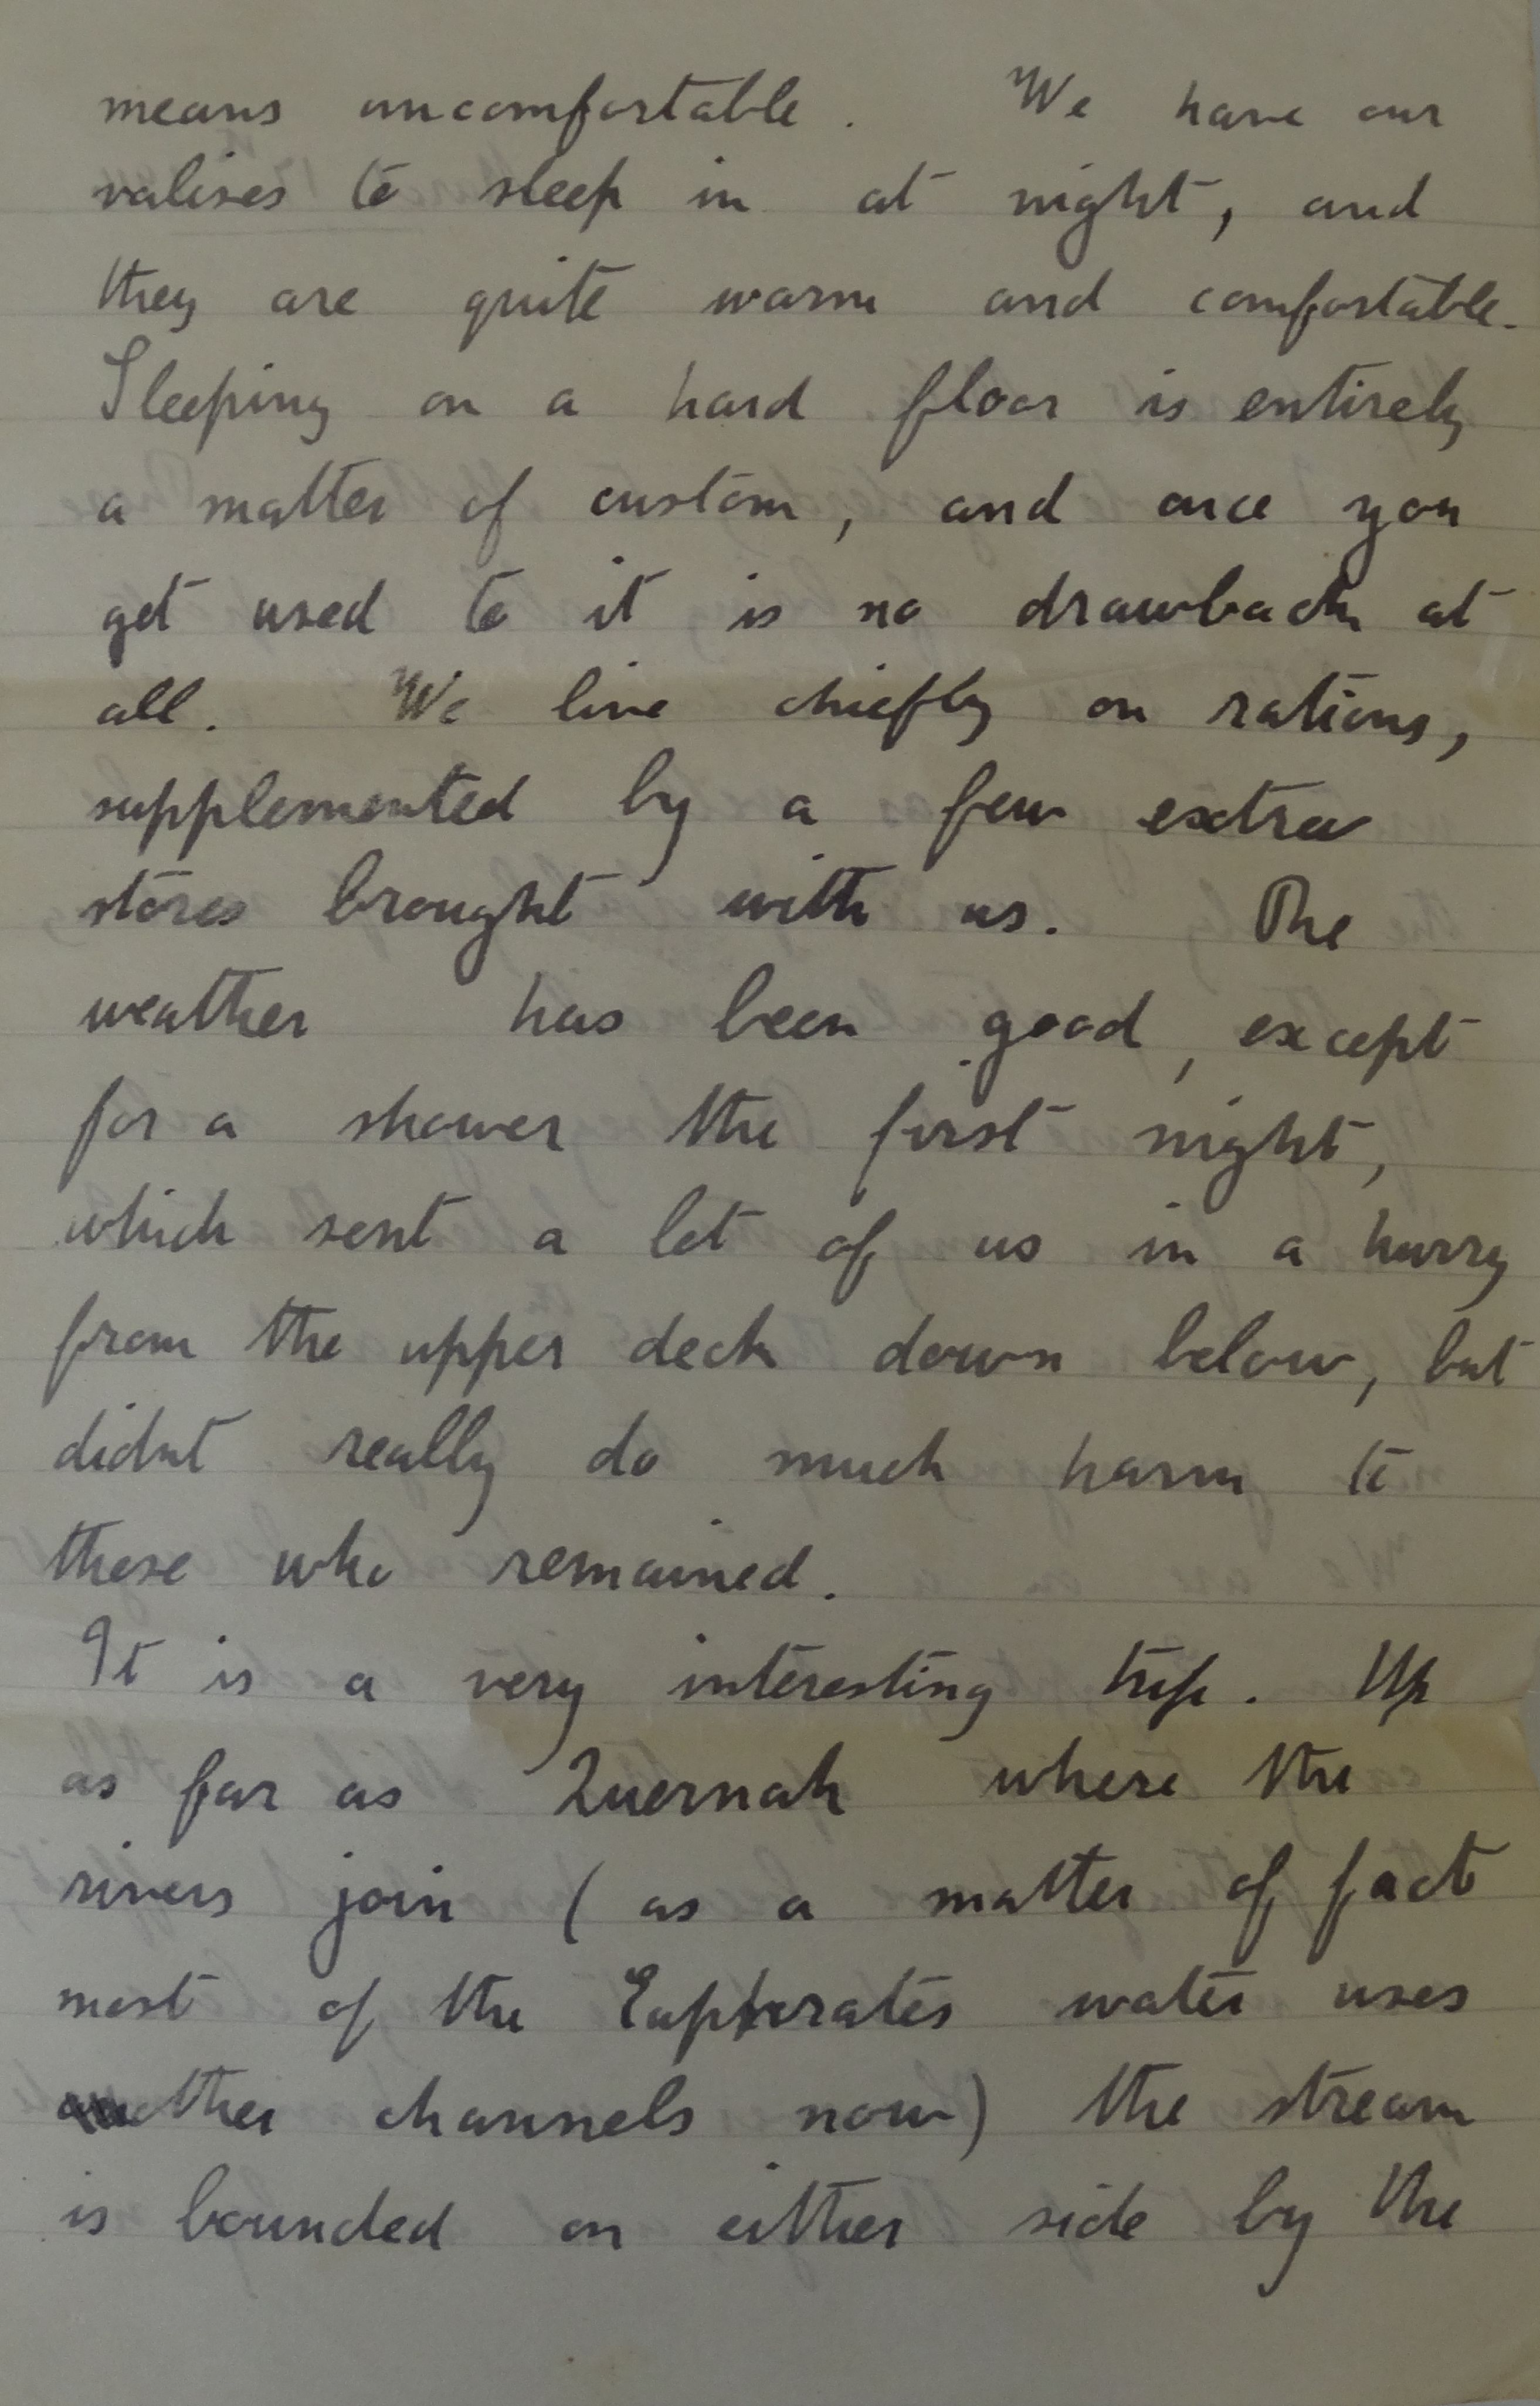 means uncomfortable. We have our
valises to sleep in at night, and
they are quite warm and comfortable.
Sleeping on a hard floor is entirely
a matter of custom, and once you
get used to it is no drawback at
all. We live chiefly on rations,
supplemented by a few extra
stores brought with us. The
weather has been good, except
for a shower the first night,
which sent a lot of us in a hurry
from the upper deck down below, but
didnt really do much harm to
those who remained.
It is a very interesting trip. Up
as far as Quernah where the
rivers join (as a matter of fact
most of the Euphrates water uses
other channels now) the stream
is bounded on either side by the